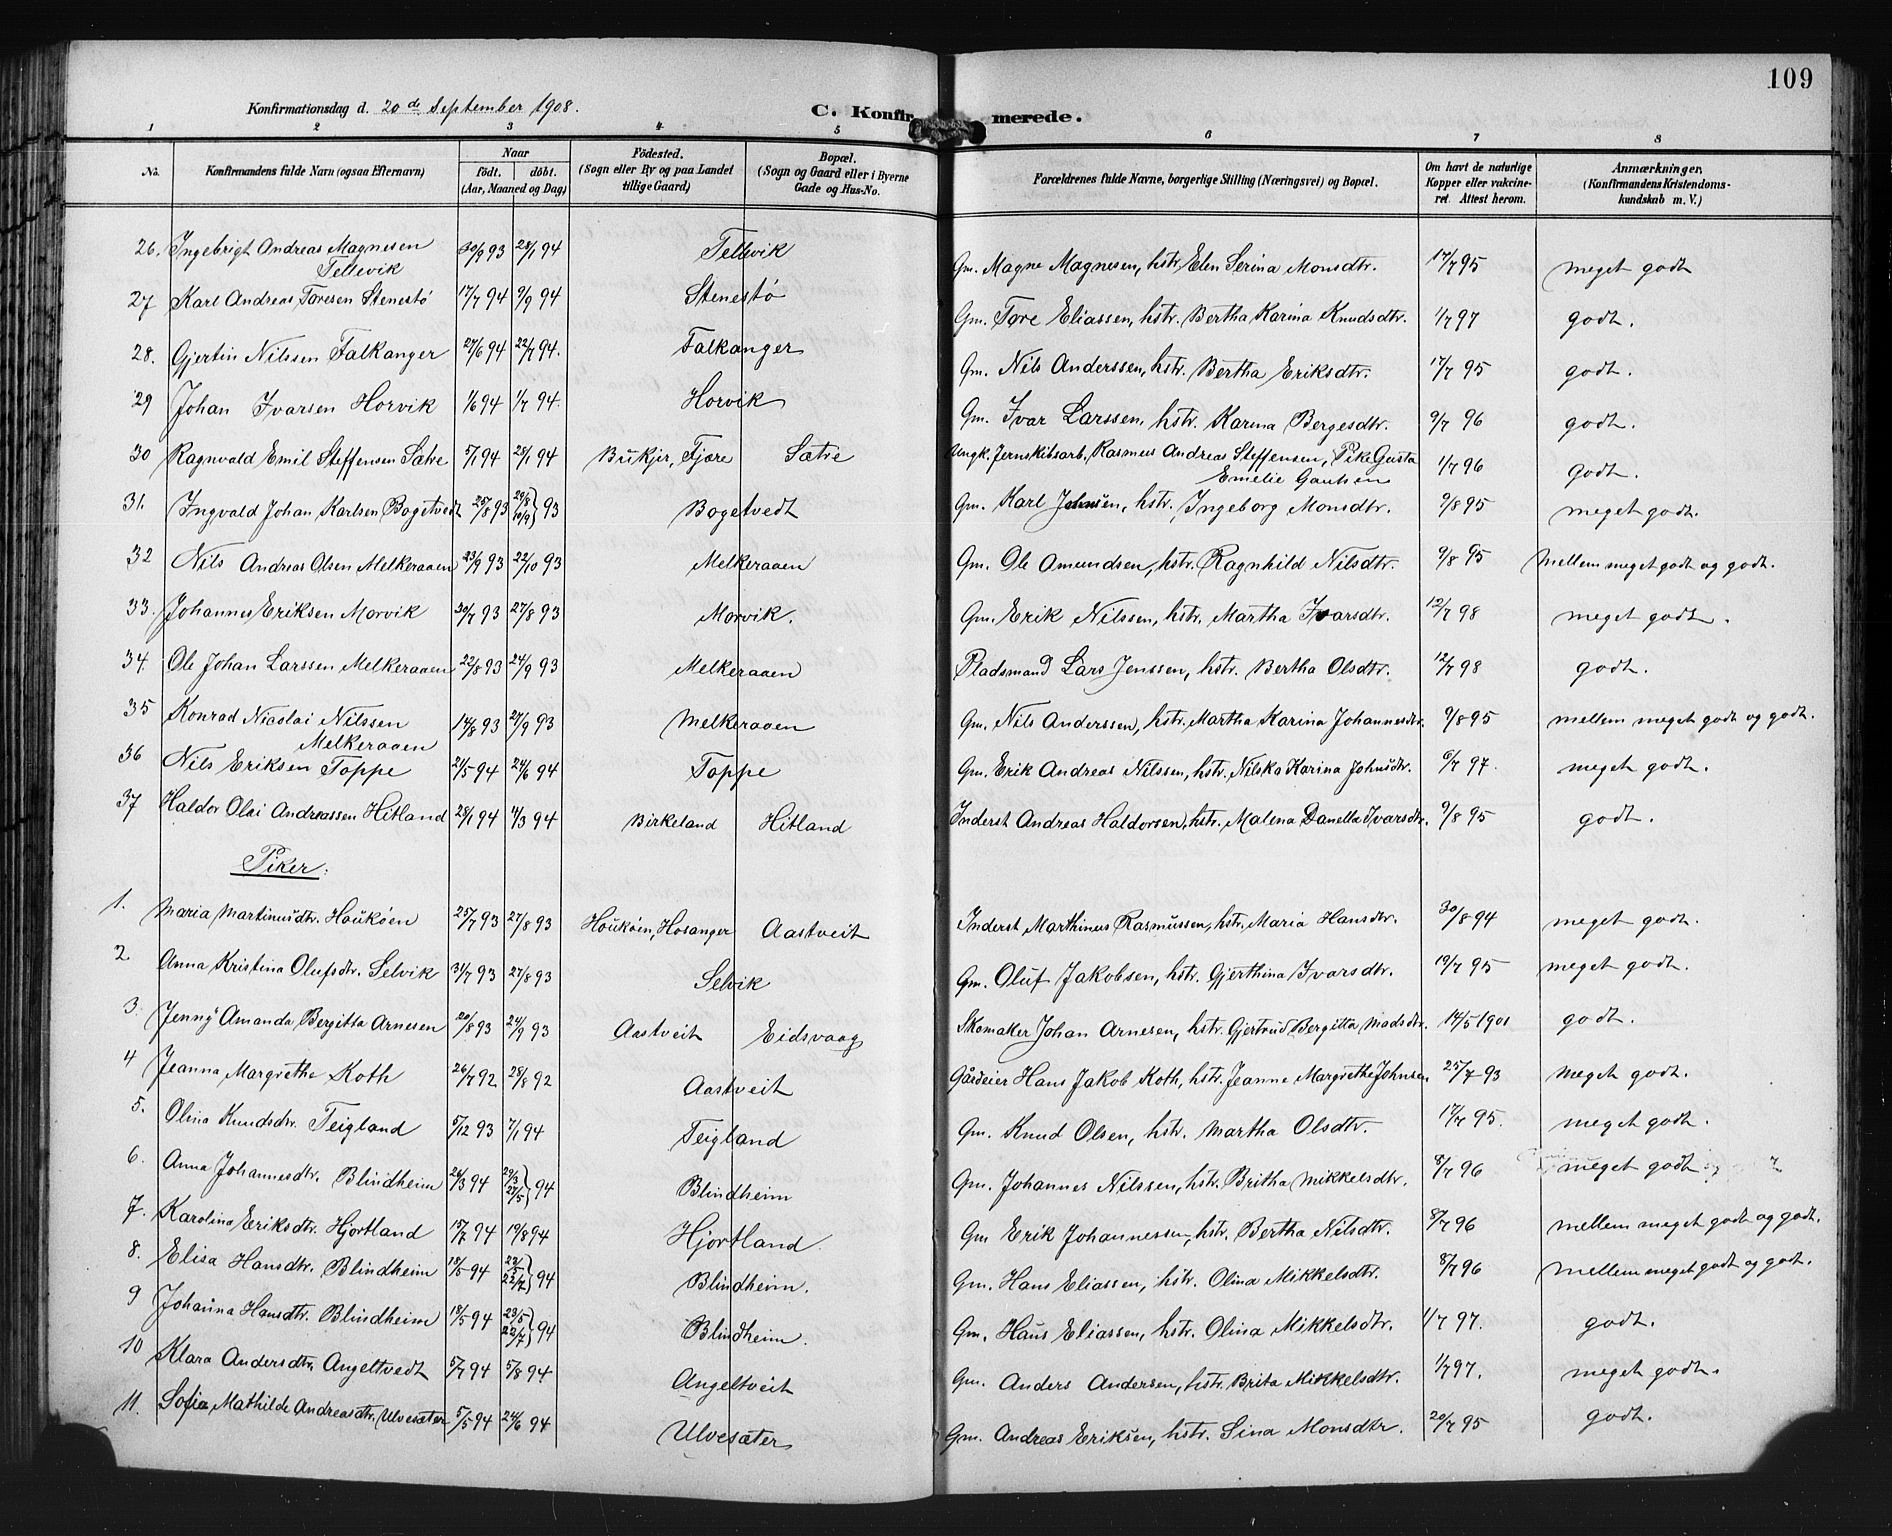 109
Konfirmationsdag d. 20de September 1908.
C. Konfirmerede.
1 2 3 4 5 6 7 8
No. Konfirmandens fulde Navn (ogsaa Efternavn) Naar födt. döbt. (Aar, Maaned og Dag) Födested. (Sogn eller By og paa Landet tillige Gaard) Bopæl. (Sogn og Gaard eller i Byerne Gade og Hus-No. Forældrenes fulde Navne, borgerlige Stilling (Næringsvei) og Bopæl. Om havt de naturlige Kopper eller vakcineret. Attest herom. Anmærkninger. (Konfirmandens Kristendomskundskab m. V.)
26. Ingebrigt Andreas Magnesen Tellevik 30/9 93 28/1 94 Tellevik Gm. Magne Magnesen, hstr. Elen Serina Monsdtr. 17/7 95 meget godt
27 Karl Andreas Toresen Stenestø 17/7 94 9/9 94 Stenestø Gm. Tore Eliassen, hstr. Bertha Karina Knudsdtr. 1/7 97 godt.
28. Gjertin Nilssen Falkanger 27/6 94 22/7 94. Falkanger Gm. Nils Anderssen, hstr. Bertha Eriksdtr. 17/7 95 godt.
29 Johan Ivarsen Horvik 1/6 94 1/7 94. Horvik Gm. Ivar Larssen, hstr. Karina Bergesdtr. 9/7 96 godt.
30 Ragnvald Emil Steffensen Sætre 5/1 94 28/1 94 Bukjir, Fjære Sætre Ungk. Jernskibsarb. Rasmus Andreas Steffensen, Pike Gusta Emelie Gautsen 1/7 96 godt.
31. Ingvald Johan Karlsen Bogetvedt 25/8 93 29/8 10/9} 93 Bogetvedt Gm. Karl Johnsen, hstr. Ingeborg Monsdtr. 9/8 95 meget godt.
32 Nils Andreas Olsen Melkeraaen 23/9 93 22/10 93 Melkeraaen Gm. Ole Omundsen, hstr. Ragnhild Nilsdtr. 9/8 95 Mellem meget godt og godt.
33. Johannes Eriksen Morvik 30/7 93 27/8 93 Morvik. Gm. Erik Nilssen, hstr. Martha Ivarsdtr. 12/7 98 meget godt.
34. Ole Johan Larssen Melkeraaen 22/8 93 24/9 93 Melkeraaen Pladsmand Lars Jenssen, hstr. Bertha Olsdtr. 12/7 98 godt.
35 Konrad Nicolai Nilssen Melkeraaen 14/8 93 27/9 93 Melkeraaen Gm. Nils Anderssen, hstr. Martha Karina Johannesdtr. 9/8 95 mellem meget godt og godt.
36 Nils Eriksen Toppe 21/5 94 24/6 94 Toppe Gm. Erik Andreas Nilssen, hstr. Nilska Karina Johnsdtr. 6/7 97. meget godt.
37 Haldor Olai Andreassen Hitland 28/1 94 11/3 94 Birkeland Hitland Inderst Andreas Haldorsen, hstr. Malena Danella Ivarsdtr. 9/8 95 godt.
Piker:
1. Maria Martinusdtr. Houkøen 25/7 93 27/8 93 Houkøen, Hosanger Aastveit Inderst Marthinus Rasmussen, hstr. Maria Hansdtr. 30/8 94 meget godt.
2 Anna Kristina Olufsdtr. Selvik 31/7 93 27/8 93 Selvik Gm. Oluf Jakobsen, hstr. Gjerthina Ivarsdtr. 19/7 95 meget godt.
3. Jenny Amanda Bergitta Arnesen 20/8 93 24/9 93 Aastveit Eidsvaag Skomaker Johan Arnesen, hstr. Gjertrud Bergitta Madsdtr. 14/5 1901 godt.
4 Jeanna Margrethe Koth 26/7 92 28/8 92 Aastveit Gårdeier Hans Jakob Koth, hstr. Jeanne Margrethe Johnsen 25/7 93 meget godt.
5. Olina Knudsdtr. Teigland 5/12 93 7/1 94 Teigland Gm. Knud Olsen, hstr. Martha Olsdtr. 17/7 95. meget godt.
6. Anna Johannesdtr. Blindheim 26/3 94 29/3 27/5} 94 Blindheim Gm. Johannes Nilssen, hstr. Britha Mikkelsdtr. 8/7 96 meget godt
7. Karolina Eriksdtr. Hjortland 15/7 94 19/8 94 Hjortland. Gm Erik Johannessen, hstr. Bertha Nilsdtr. 8/7 96 mellem meget godt og godt.
8. Elisa Hansdtr. Blindheim 18/5 94 23/5 22/7} 94 Blindheim. Gm. Hans Eliassen, hstr. Olina Mikkelsdtr. 8/7 96 mellem meget godt og godt.
9 Johanna Hansdtr. Blindheim 18/5 94 23/5 22/7} 94 Blindheim. Gm. Hans Eliassen, hstr. Olina Mikkelsdtr. 1/7 97. godt.
10 Klara Andersdtr. Angeltvedt 5/7 94 5/8 94 Angeltveit Gm. Anders Andersen, hstr. Brita Mikkelsdtr. 1/7 97. meget godt.
11. Sofie Mathilde Andreasdtr. Ulvesæter 5/5 94 24/6 94 Ulvesæter Gm. Andreas Eriksen, hstr. Sina Monsdtr. 20/7 95 godt.